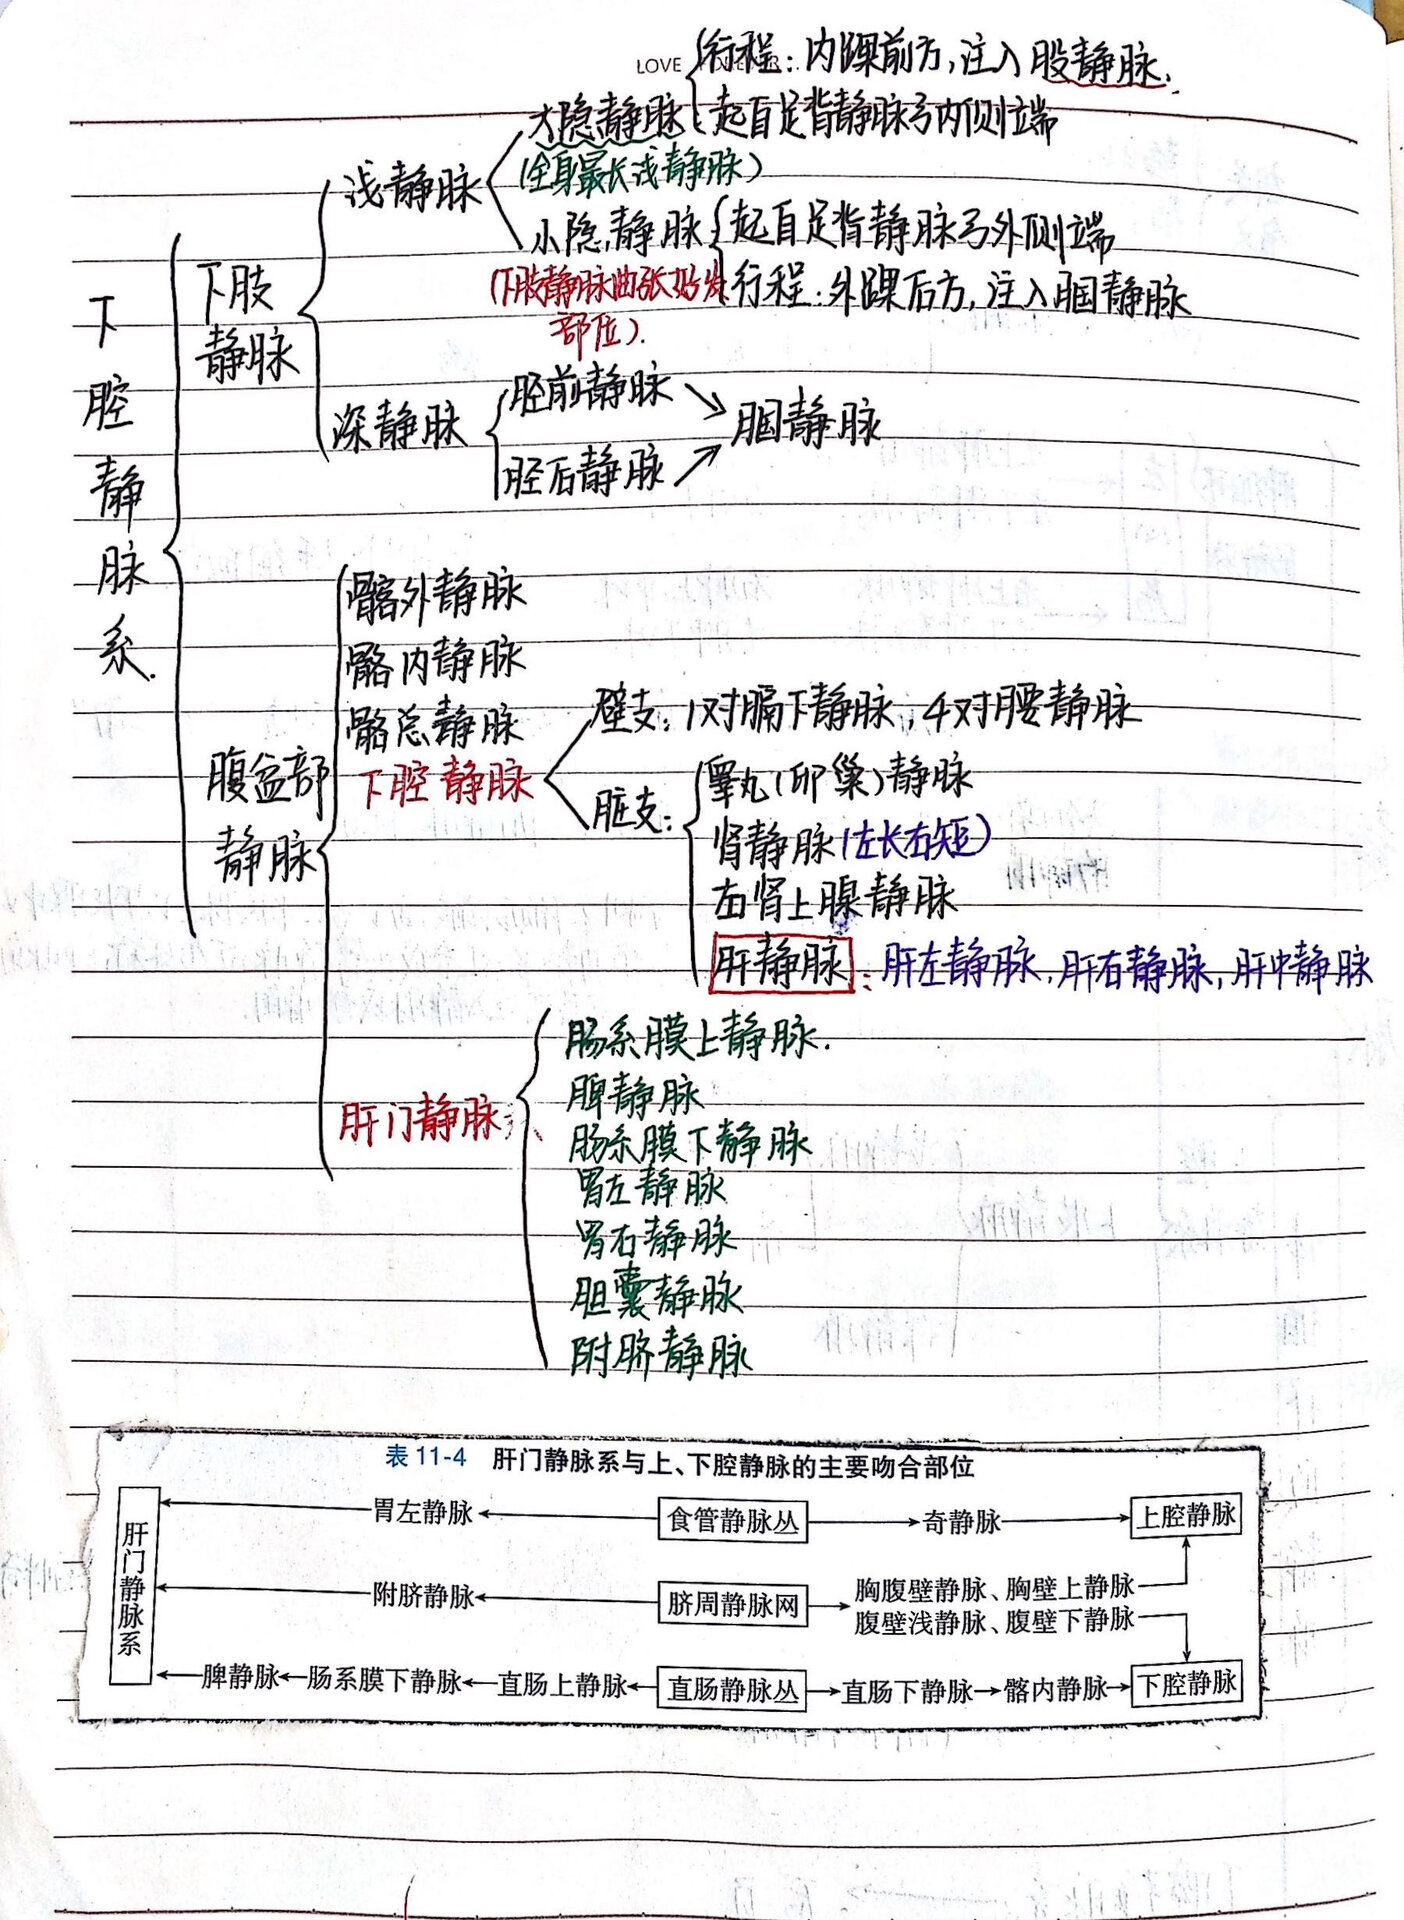 LOVE
行程：内踝前方，注入股静脉.
大隐静脉
起自足背静脉弓内侧端
(全身最长浅静脉)
浅静脉
小隐静脉
起自足背静脉弓外侧端
(下肢静脉曲张好发
部位).
行程：外踝后方，注入腘静脉
下肢
静脉
深静脉
胫前静脉
胫后静脉
腘静脉
下
腔
静
脉
系.
髂外静脉
髂内静脉
髂总静脉
下腔静脉
壁支：1对膈下静脉，4对腰静脉
腹盆部
静脉
脏支：
睾丸(卵巢)静脉
肾静脉(左长右短)
右肾上腺静脉
肝静脉：肝左静脉，肝右静脉，肝中静脉
肝门静脉
肠系膜上静脉.
脾静脉
肠系膜下静脉
胃左静脉
胃右静脉
胆囊静脉
附脐静脉
表 11-4 肝门静脉系与上、下腔静脉的主要吻合部位
肝门静脉系
胃左静脉 食管静脉丛 奇静脉 上腔静脉
附脐静脉 脐周静脉网 胸腹壁静脉、胸壁上静脉
腹壁浅静脉、腹壁下静脉
脾静脉 肠系膜下静脉 直肠上静脉 直肠静脉丛 直肠下静脉 髂内静脉 下腔静脉